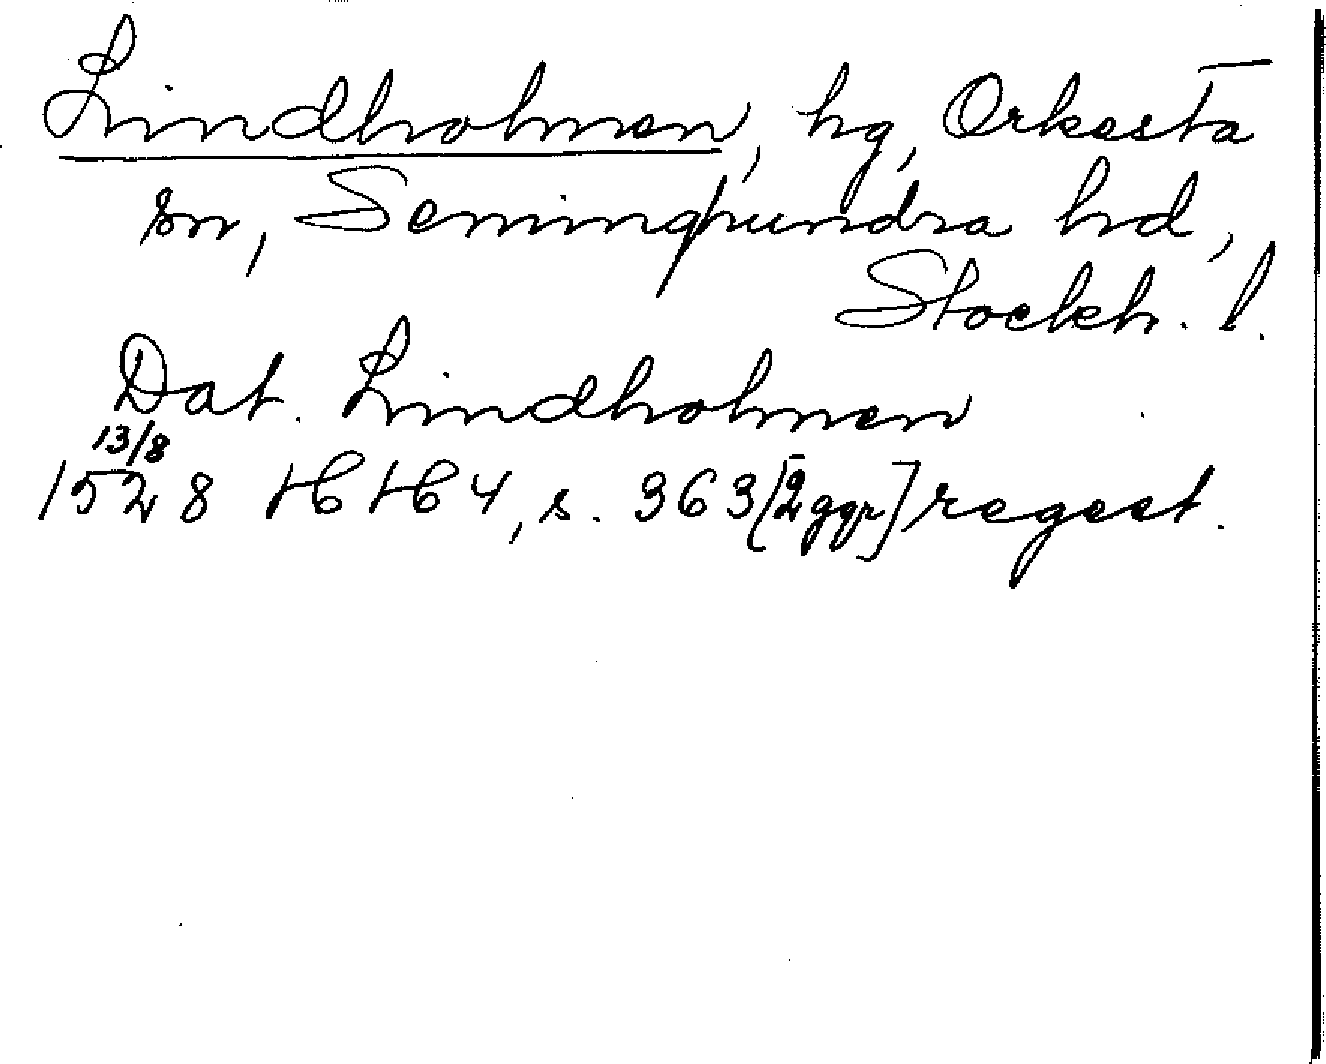 Lindholmen, hg, Orkesta
sn, Seminghundra hd,
Stockh. l.
Dat. Lindholmen
13/8
1528 HH 4, s. 363 [2 ggr] regest.